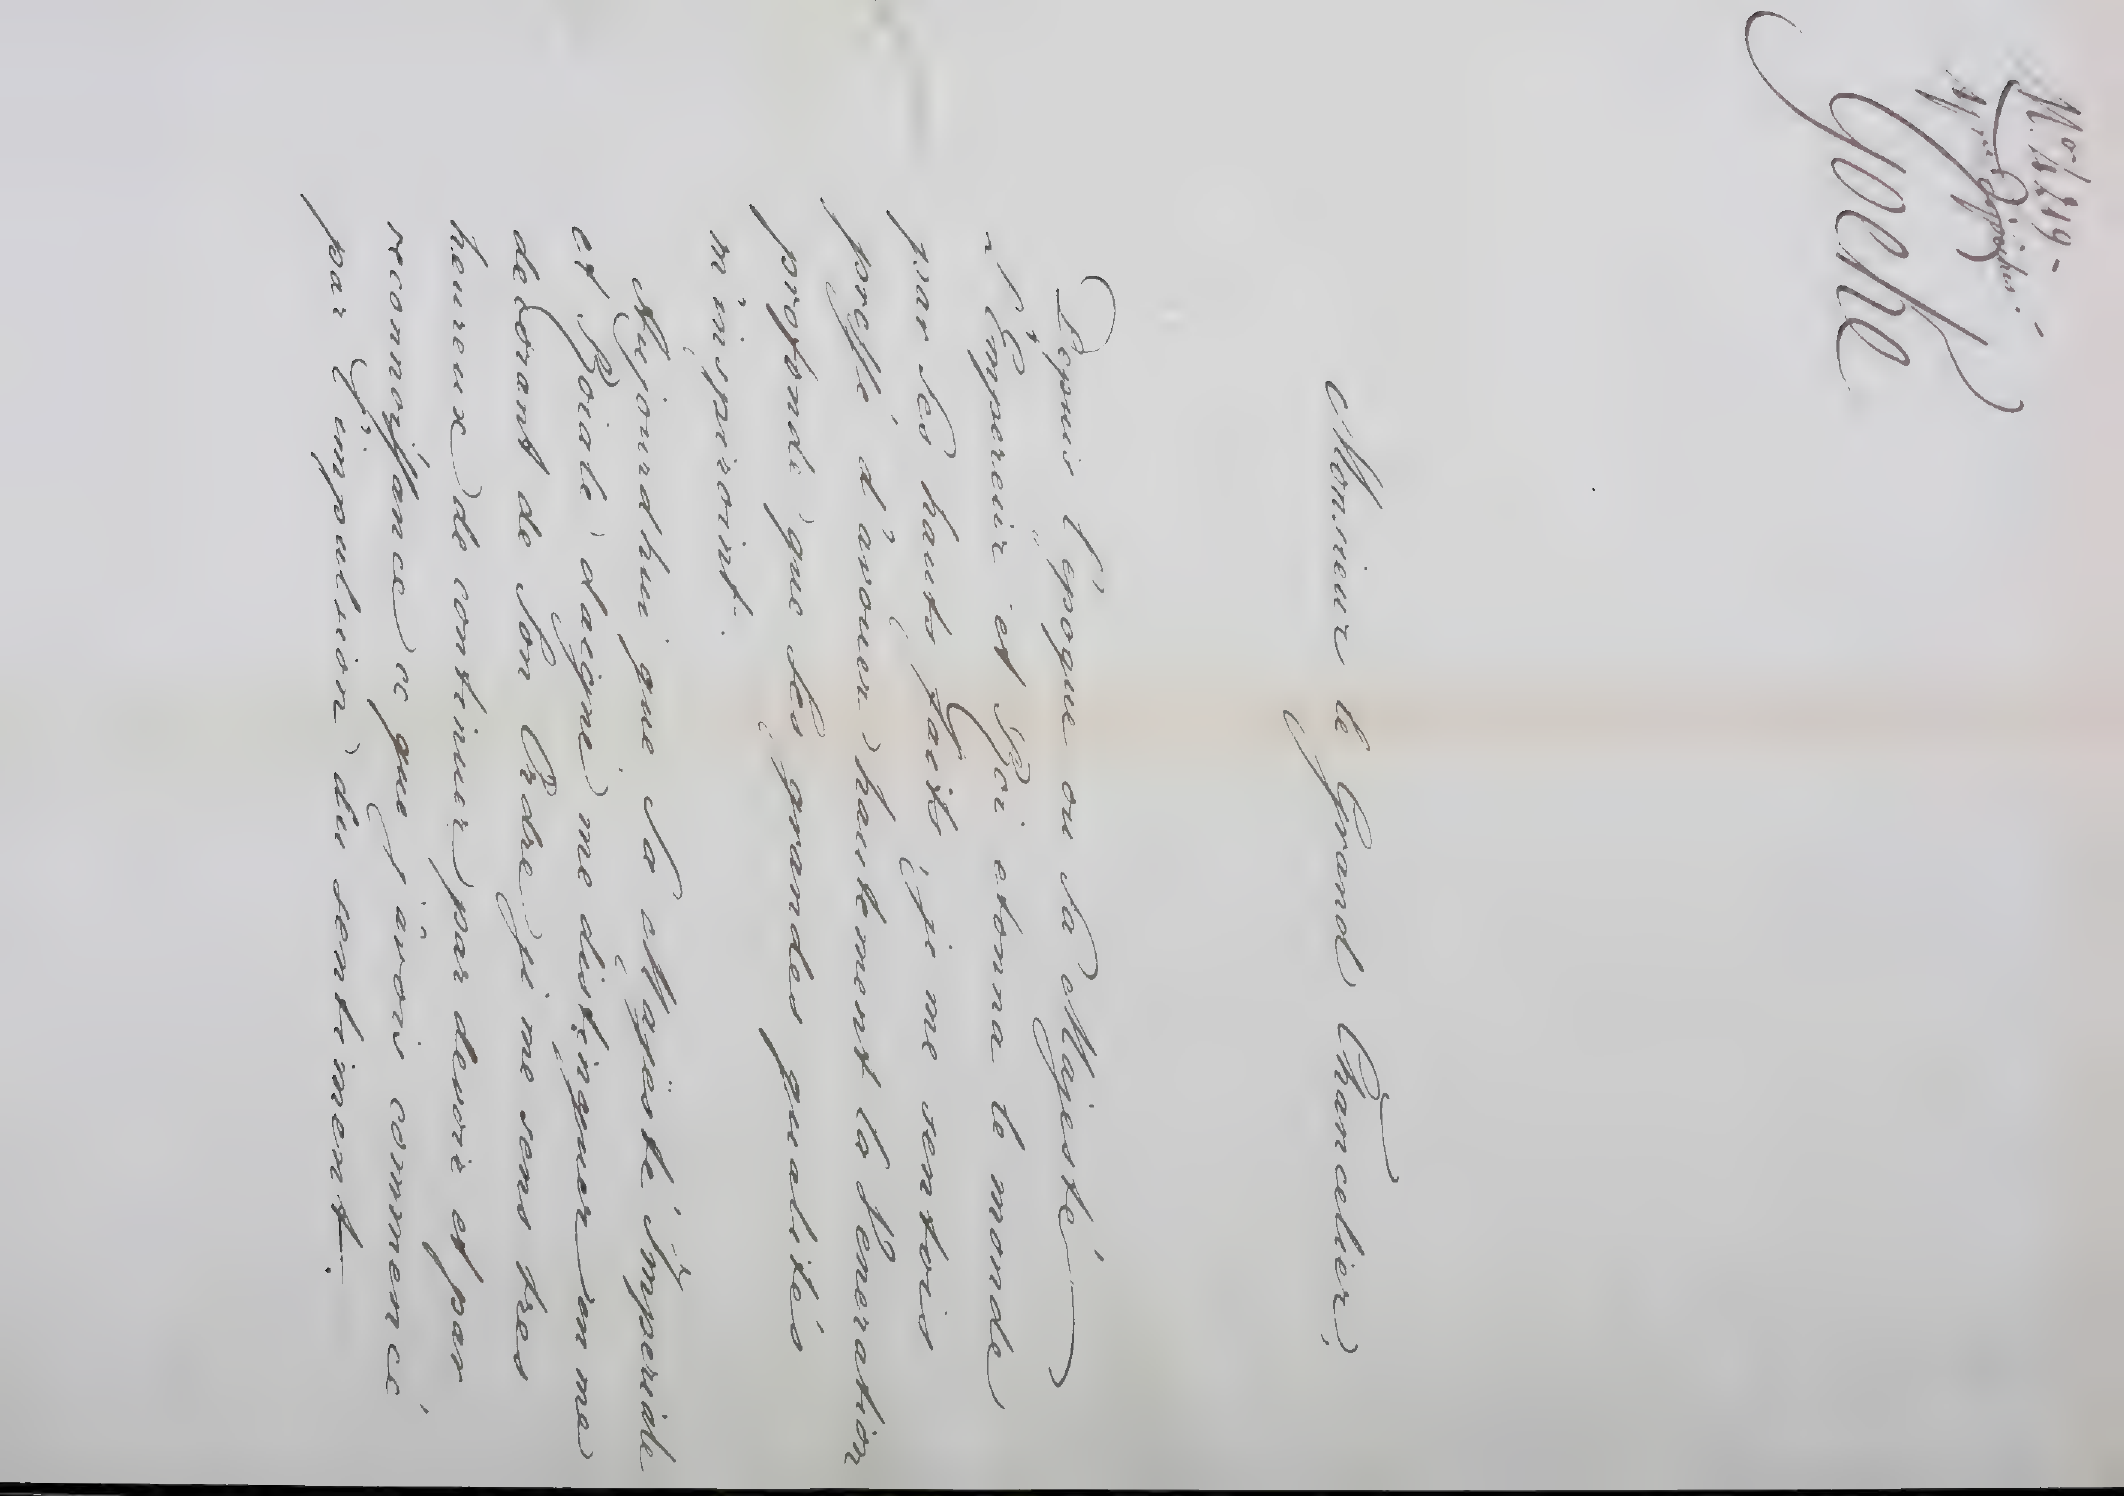 Goethe
Monsieur le Grand Chancelier,
Depuis l'époque ou sa Majesté
l'Empereur et Roi etonna le monde
par Ses hauts faits, je me sentois
pressé d'avouer hautement la Veneration
profonde que Ses grandes qualités
m'inspiroint.
Aujourdhui que Sa Majesté Imperiale
et Roiale daigne me distinguer en me
decorant de Son Ordre, je me sens tres
heureux de continuer par devoir et par
reconnoissance ce que j'avois commencé
par l'impulsion du sentiment.